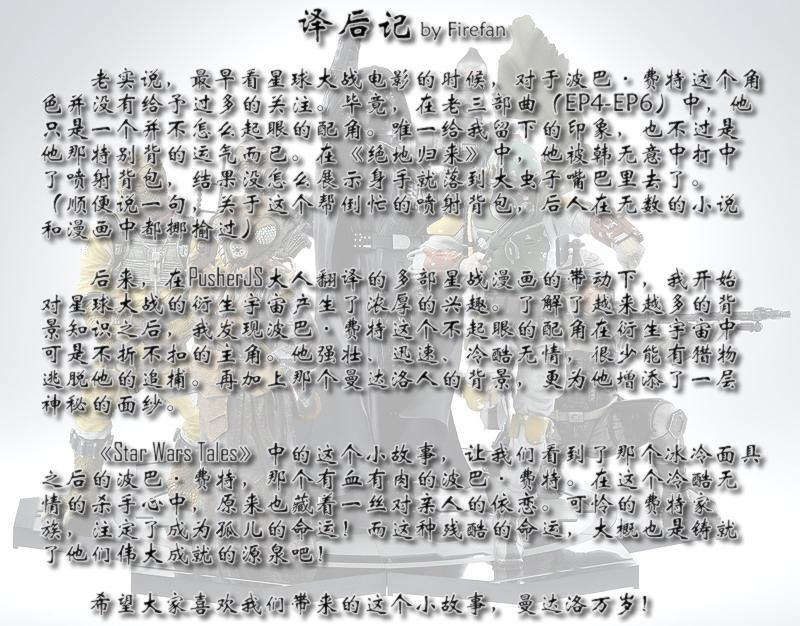 译后记 by Firefan
老实说，最早看星球大战电影的时候，对于波巴·费特这个角
色并没有给予过多的关注。毕竟，在老三部曲（EP4-EP6）中，他
只是一个并不怎么起眼的配角。唯一给我留下的印象，也不过是
他那特别背的运气而已。在《绝地归来》中，他被韩无意中打中
了喷射背包，结果没怎么展示身手就落到大虫子嘴巴里去了。
（顺便说一句，关于这个帮倒忙的喷射背包，后人在无数的小说
和漫画中都揶揄过）
后来，在PusherJS大人翻译的多部星战漫画的带动下，我开始
对星球大战的衍生宇宙产生了浓厚的兴趣。了解了越来越多的背
景知识之后，我发现波巴·费特这个不起眼的配角在衍生宇宙中
可是不折不扣的主角。他强壮、迅速、冷酷无情，很少能有猎物
逃脱他的追捕。再加上那个曼达洛人的背景，更为他增添了一层
神秘的面纱。
《Star Wars Tales》 中的这个小故事，让我们看到了那个冰冷面具
之后的波巴·费特，那个有血有肉的波巴·费特。在这个冷酷无
情的杀手心中，原来也藏着一丝对亲人的依恋。可怜的费特家
族，注定了成为孤儿的命运！而这种残酷的命运，大概也是铸就
了他们伟大成就的源泉吧！
希望大家喜欢我们带来的这个小故事，曼达洛万岁！